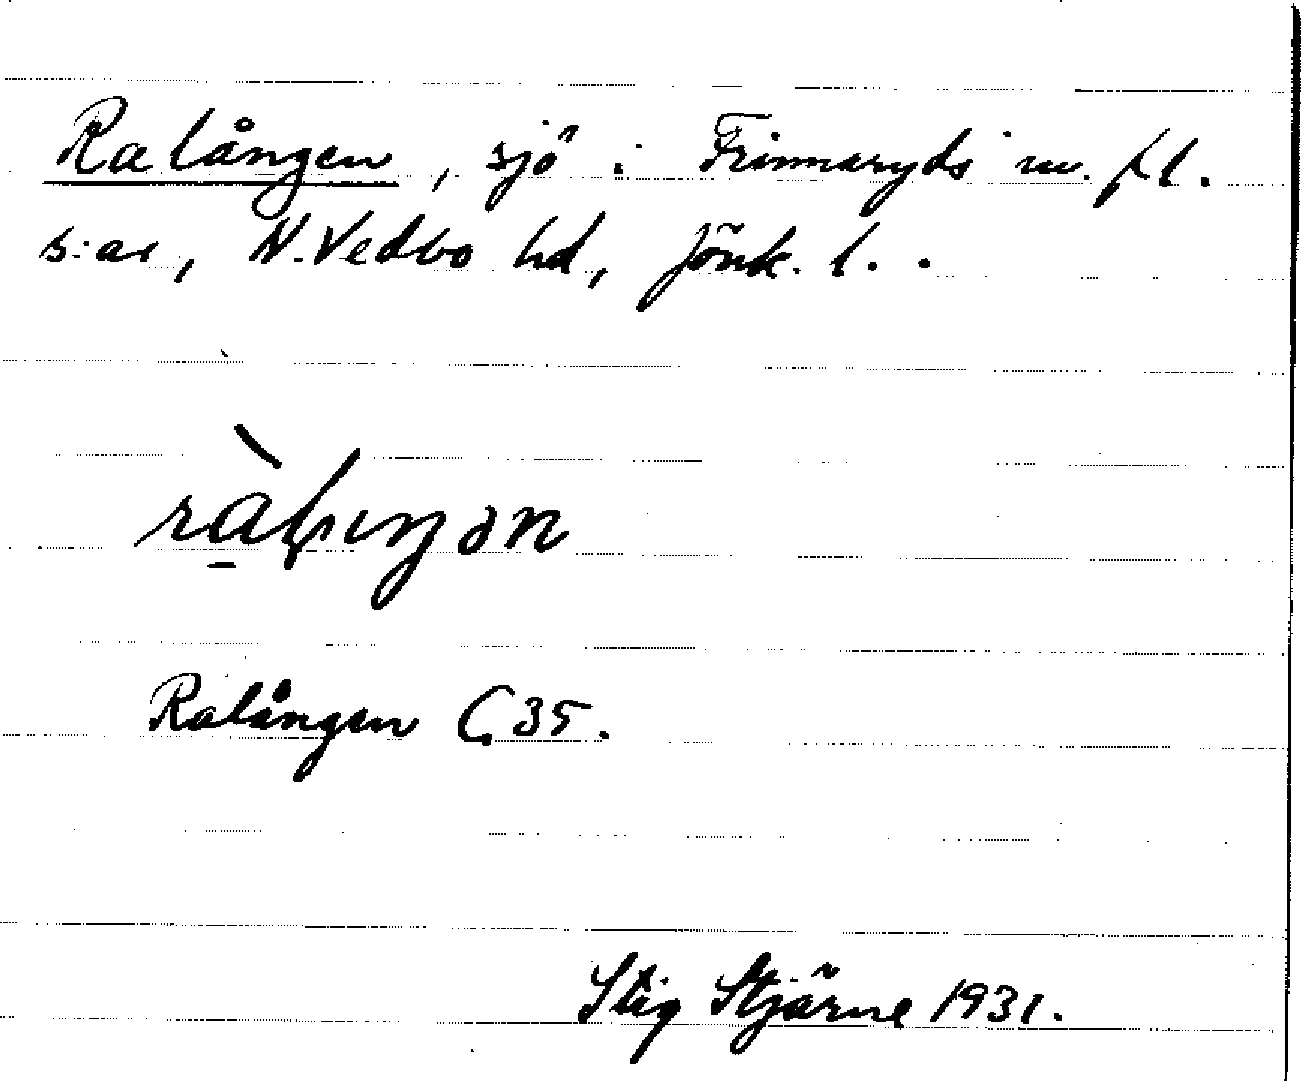 Ralången, sjö i Frinnaryds m. fl.
s:ar, N. Vedbo hd, Jönk. l..
Ralången C. 35.
Stig Stjärne 1931.